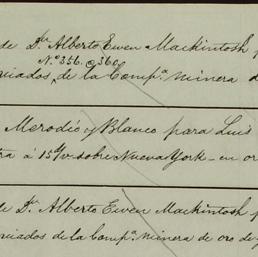 de Dn. Alberto Ewen Mackintosh p
Nos. 356. @ 360
viados, de la Compa. minera d
Merodio y Blanco para Luis
tra á 15 d/v sobre Nueva York - en or
de Dn. Alberto Ewen Mackintosh p
viados de la Compa. minera de oro de